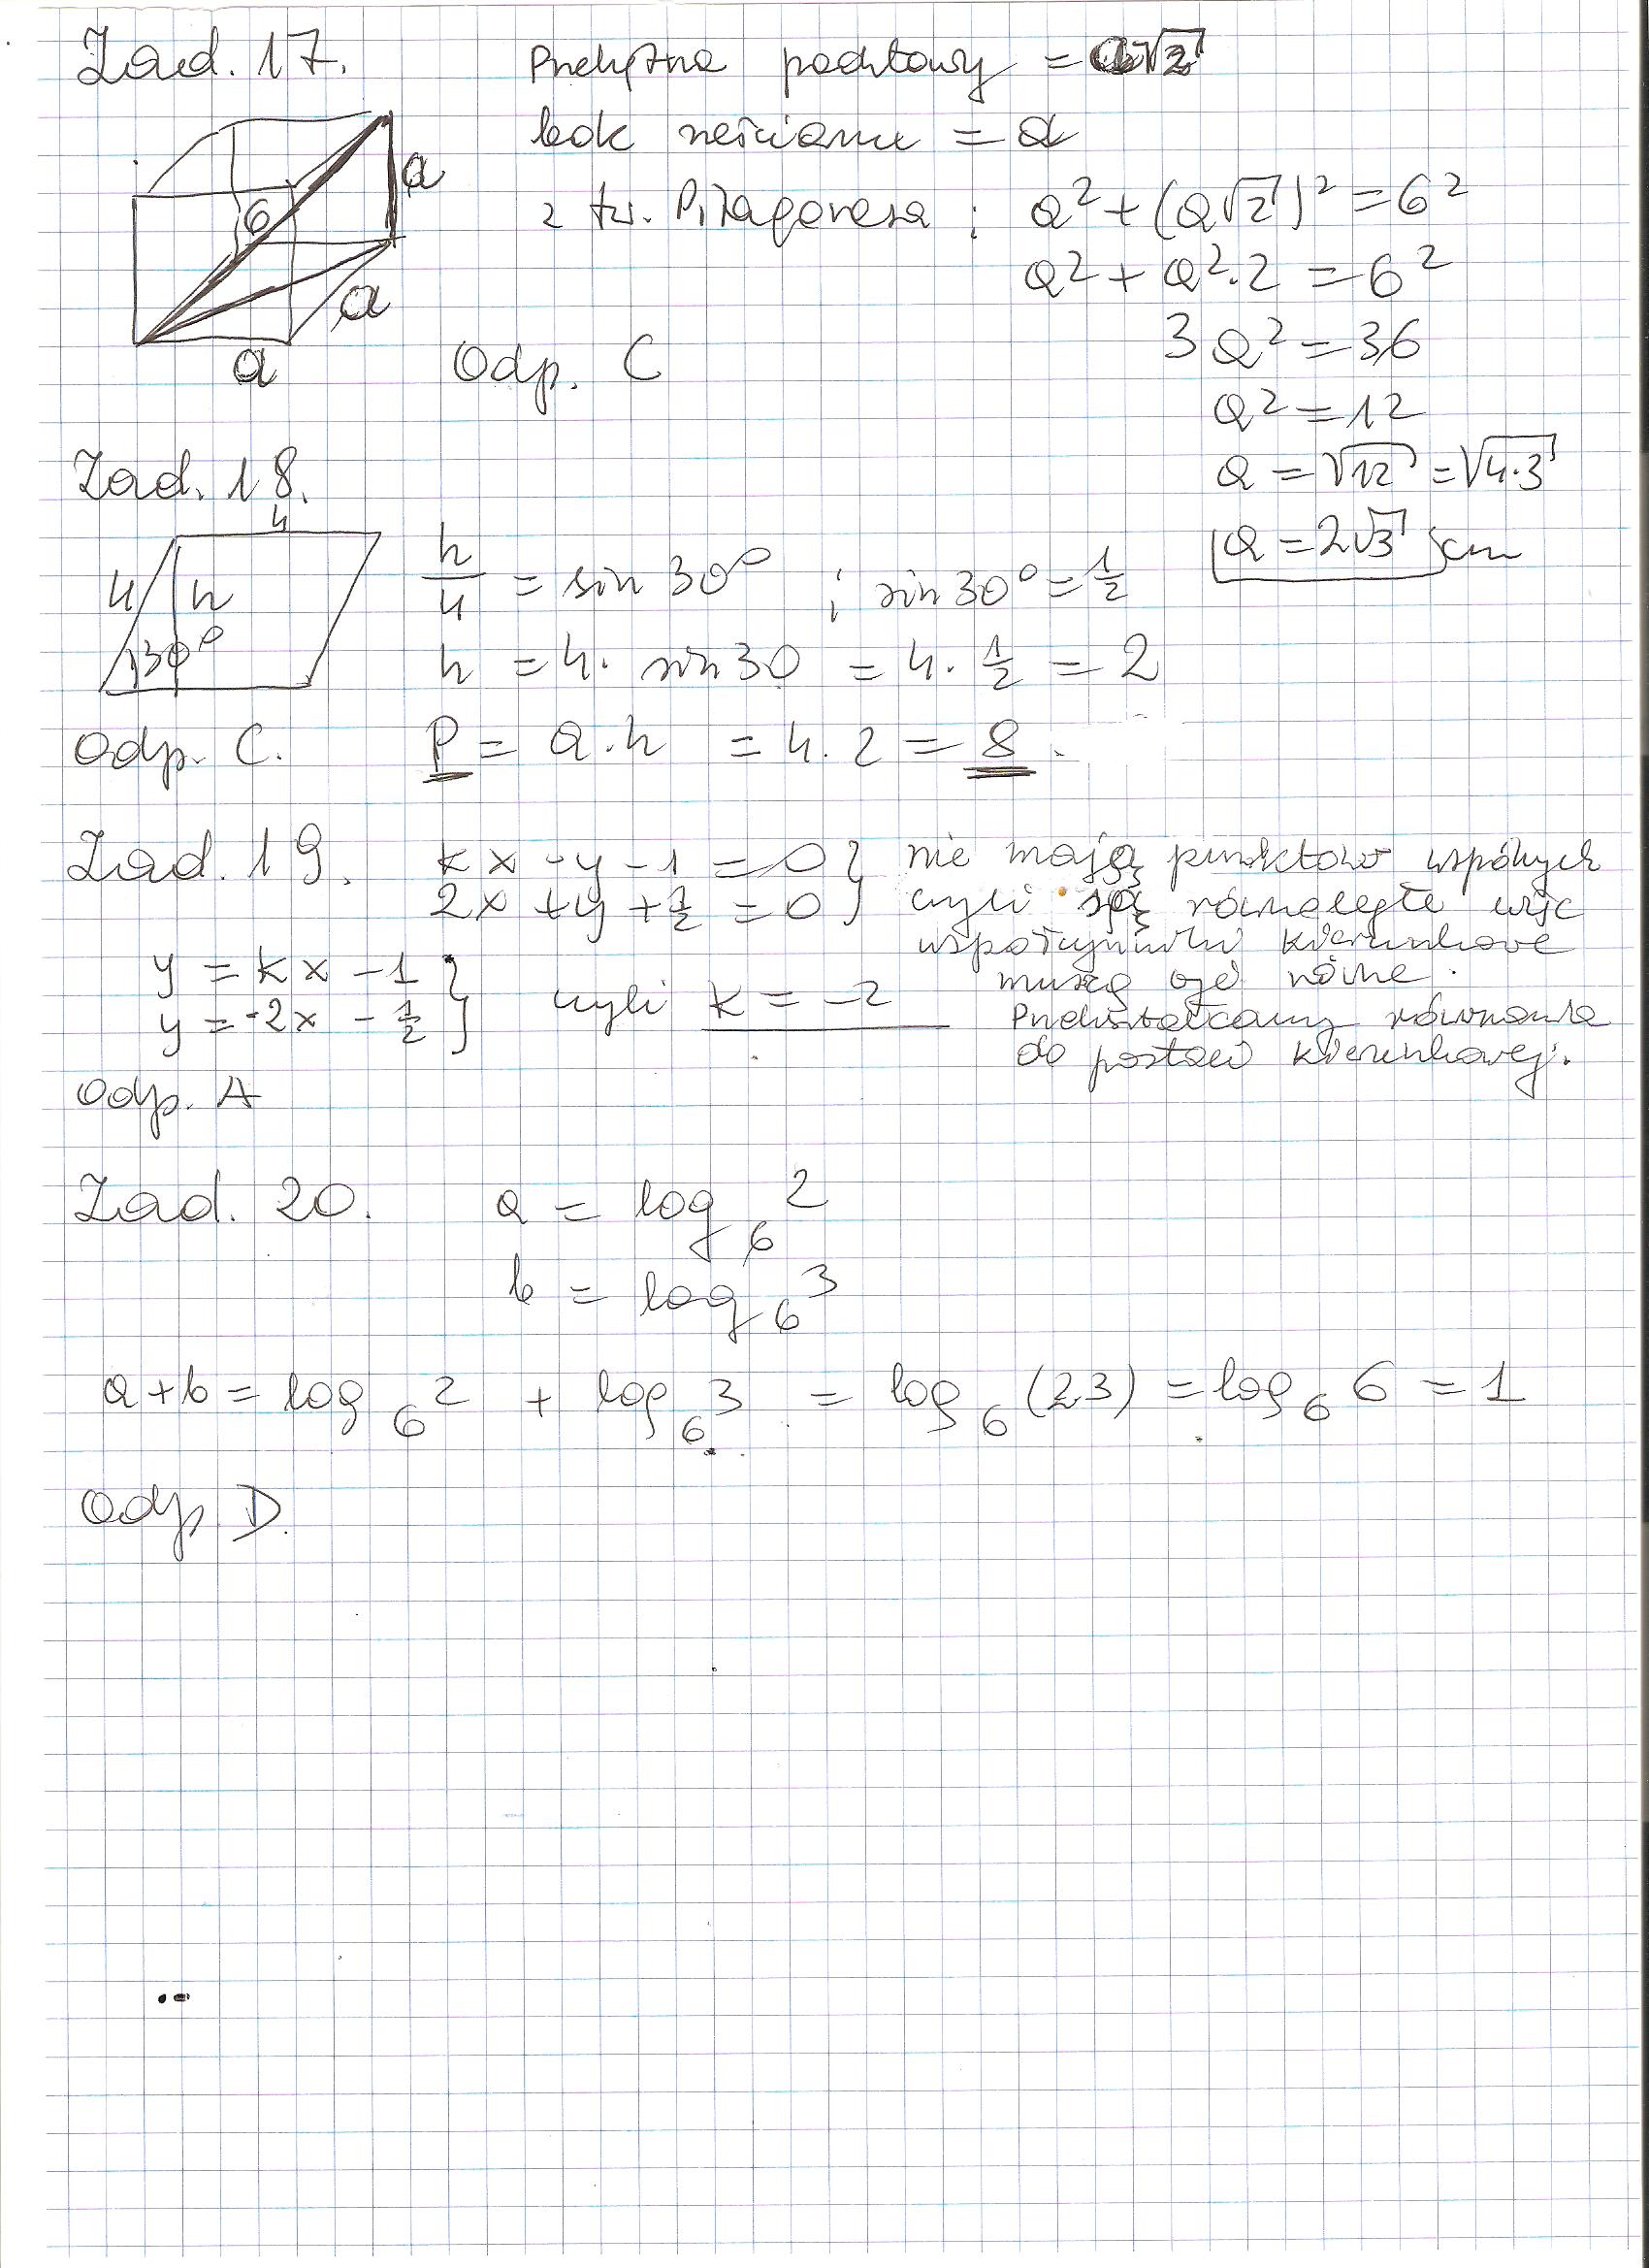 Zad. 17. Przekątna podstawy = a√2
bok sześcianu = a
z tw. Pitagorasa ; a² + (a√2)² = 6²
a² + a²·2 = 6²
3a² = 36
a² = 12
a = √12 = √4·3
a = 2√3 cm
6
a
a
a
Odp. C
Zad. 18.
4
4
h
30°
h/4 = sin 30° ; sin 30° = 1/2
h = 4· sin 30 = 4· 1/2 = 2
Odp. C. P = a·h = 4·2 = 8.
Zad. 19. kx - y - 1 = 0 } nie mają punktów wspólnych
2x + y + 1/2 = 0 } czyli są równoległe więc
współczynniki kierunkowe
muszą być równe.
Przekształcamy równania
do postaci kierunkowej.
y = kx - 1 }
y = -2x - 1/2 } czyli k = -2
Odp. A
Zad. 20. a = log₆ 2
b = log₆ 3
a + b = log₆ 2 + log₆ 3 = log₆ (2·3) = log₆ 6 = 1
Odp D.